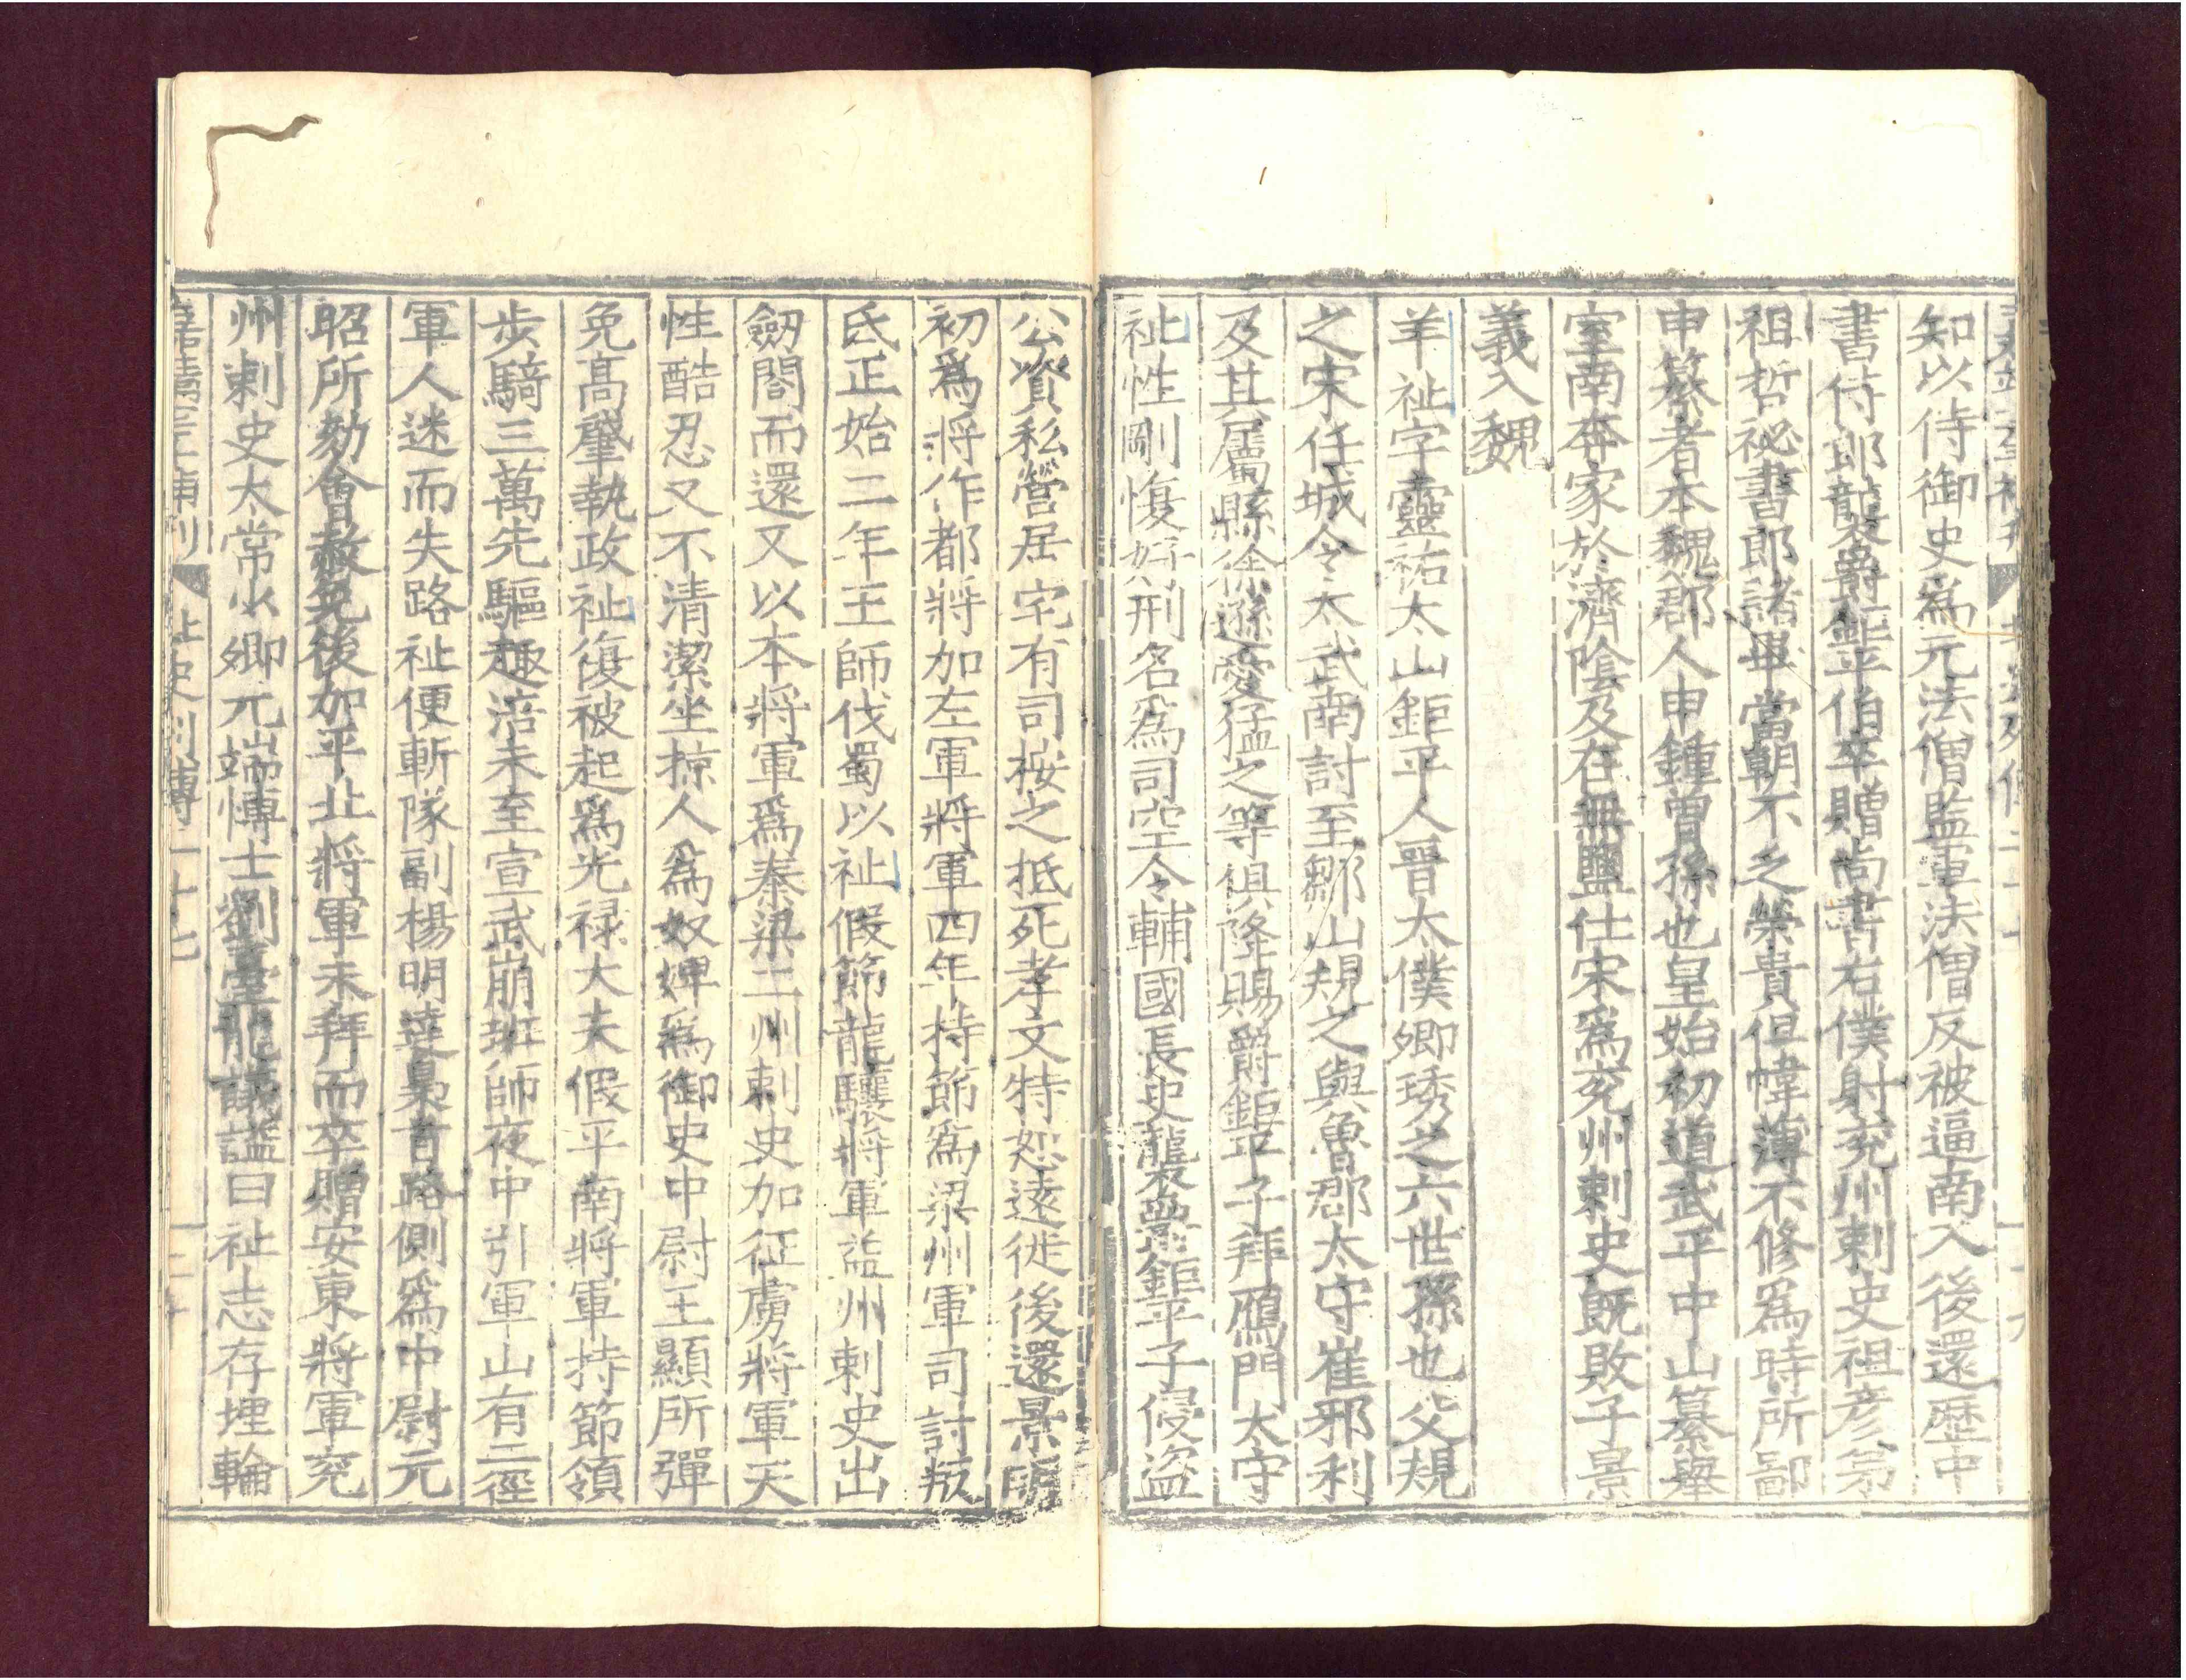 知以侍御史爲元法僧監軍法僧反被逼南入後還歷中
書侍郎龍襲爵鉅平伯卒贈尚書右僕射兖州刺史祖彦弟
祖哲祕書郎諸畢當朝不之榮貴但幃薄不修爲時所鄙
申纂者本魏郡人申鍾曾孫也皇始初道武平中山纂舉
室南奔家於濟陰及在無鹽仕宋爲兖州刺史既敗子景
義入魏
羊祉字靈祐太山鉅平人晉太僕卿琇之六世孫也父規
之宋任城令太武南討至鄒山規之與魯郡太守崔邪利
及其屬縣徐遜愛猛之等俱降賜爵鉅平子拜鴈門太守
祉性剛愎好刑名爲司空令輔國長史襲爵鉅平子侵盜
公資私營居宅有司按之抵死孝文特恕遠徙後還景明
初爲將作都將加左軍將軍四年持節爲梁州軍司討叛
氐正始二年王師伐蜀以祉假節龍驤將軍益州刺史出
劒閣而還又以本將軍爲秦梁二州刺史加征虜將軍天
性酷忍又不清潔坐掠人爲奴婢爲御史中尉王顯所彈
免高肇執政祉復被起爲光祿大夫假平南將軍持節領
步騎三萬先驅趣涪未至宣武崩班師夜中引軍山有二徑
軍人迷而失路祉便斬隊副楊明達梟首路側爲中尉元
昭所劾會赦免後加平北將軍未拜而卒贈安東將軍兖
州刺史太常少卿元端愽士劉臺龍議諡曰祉志存埋輪
嘉靖 年補刋 北史列傳二十七